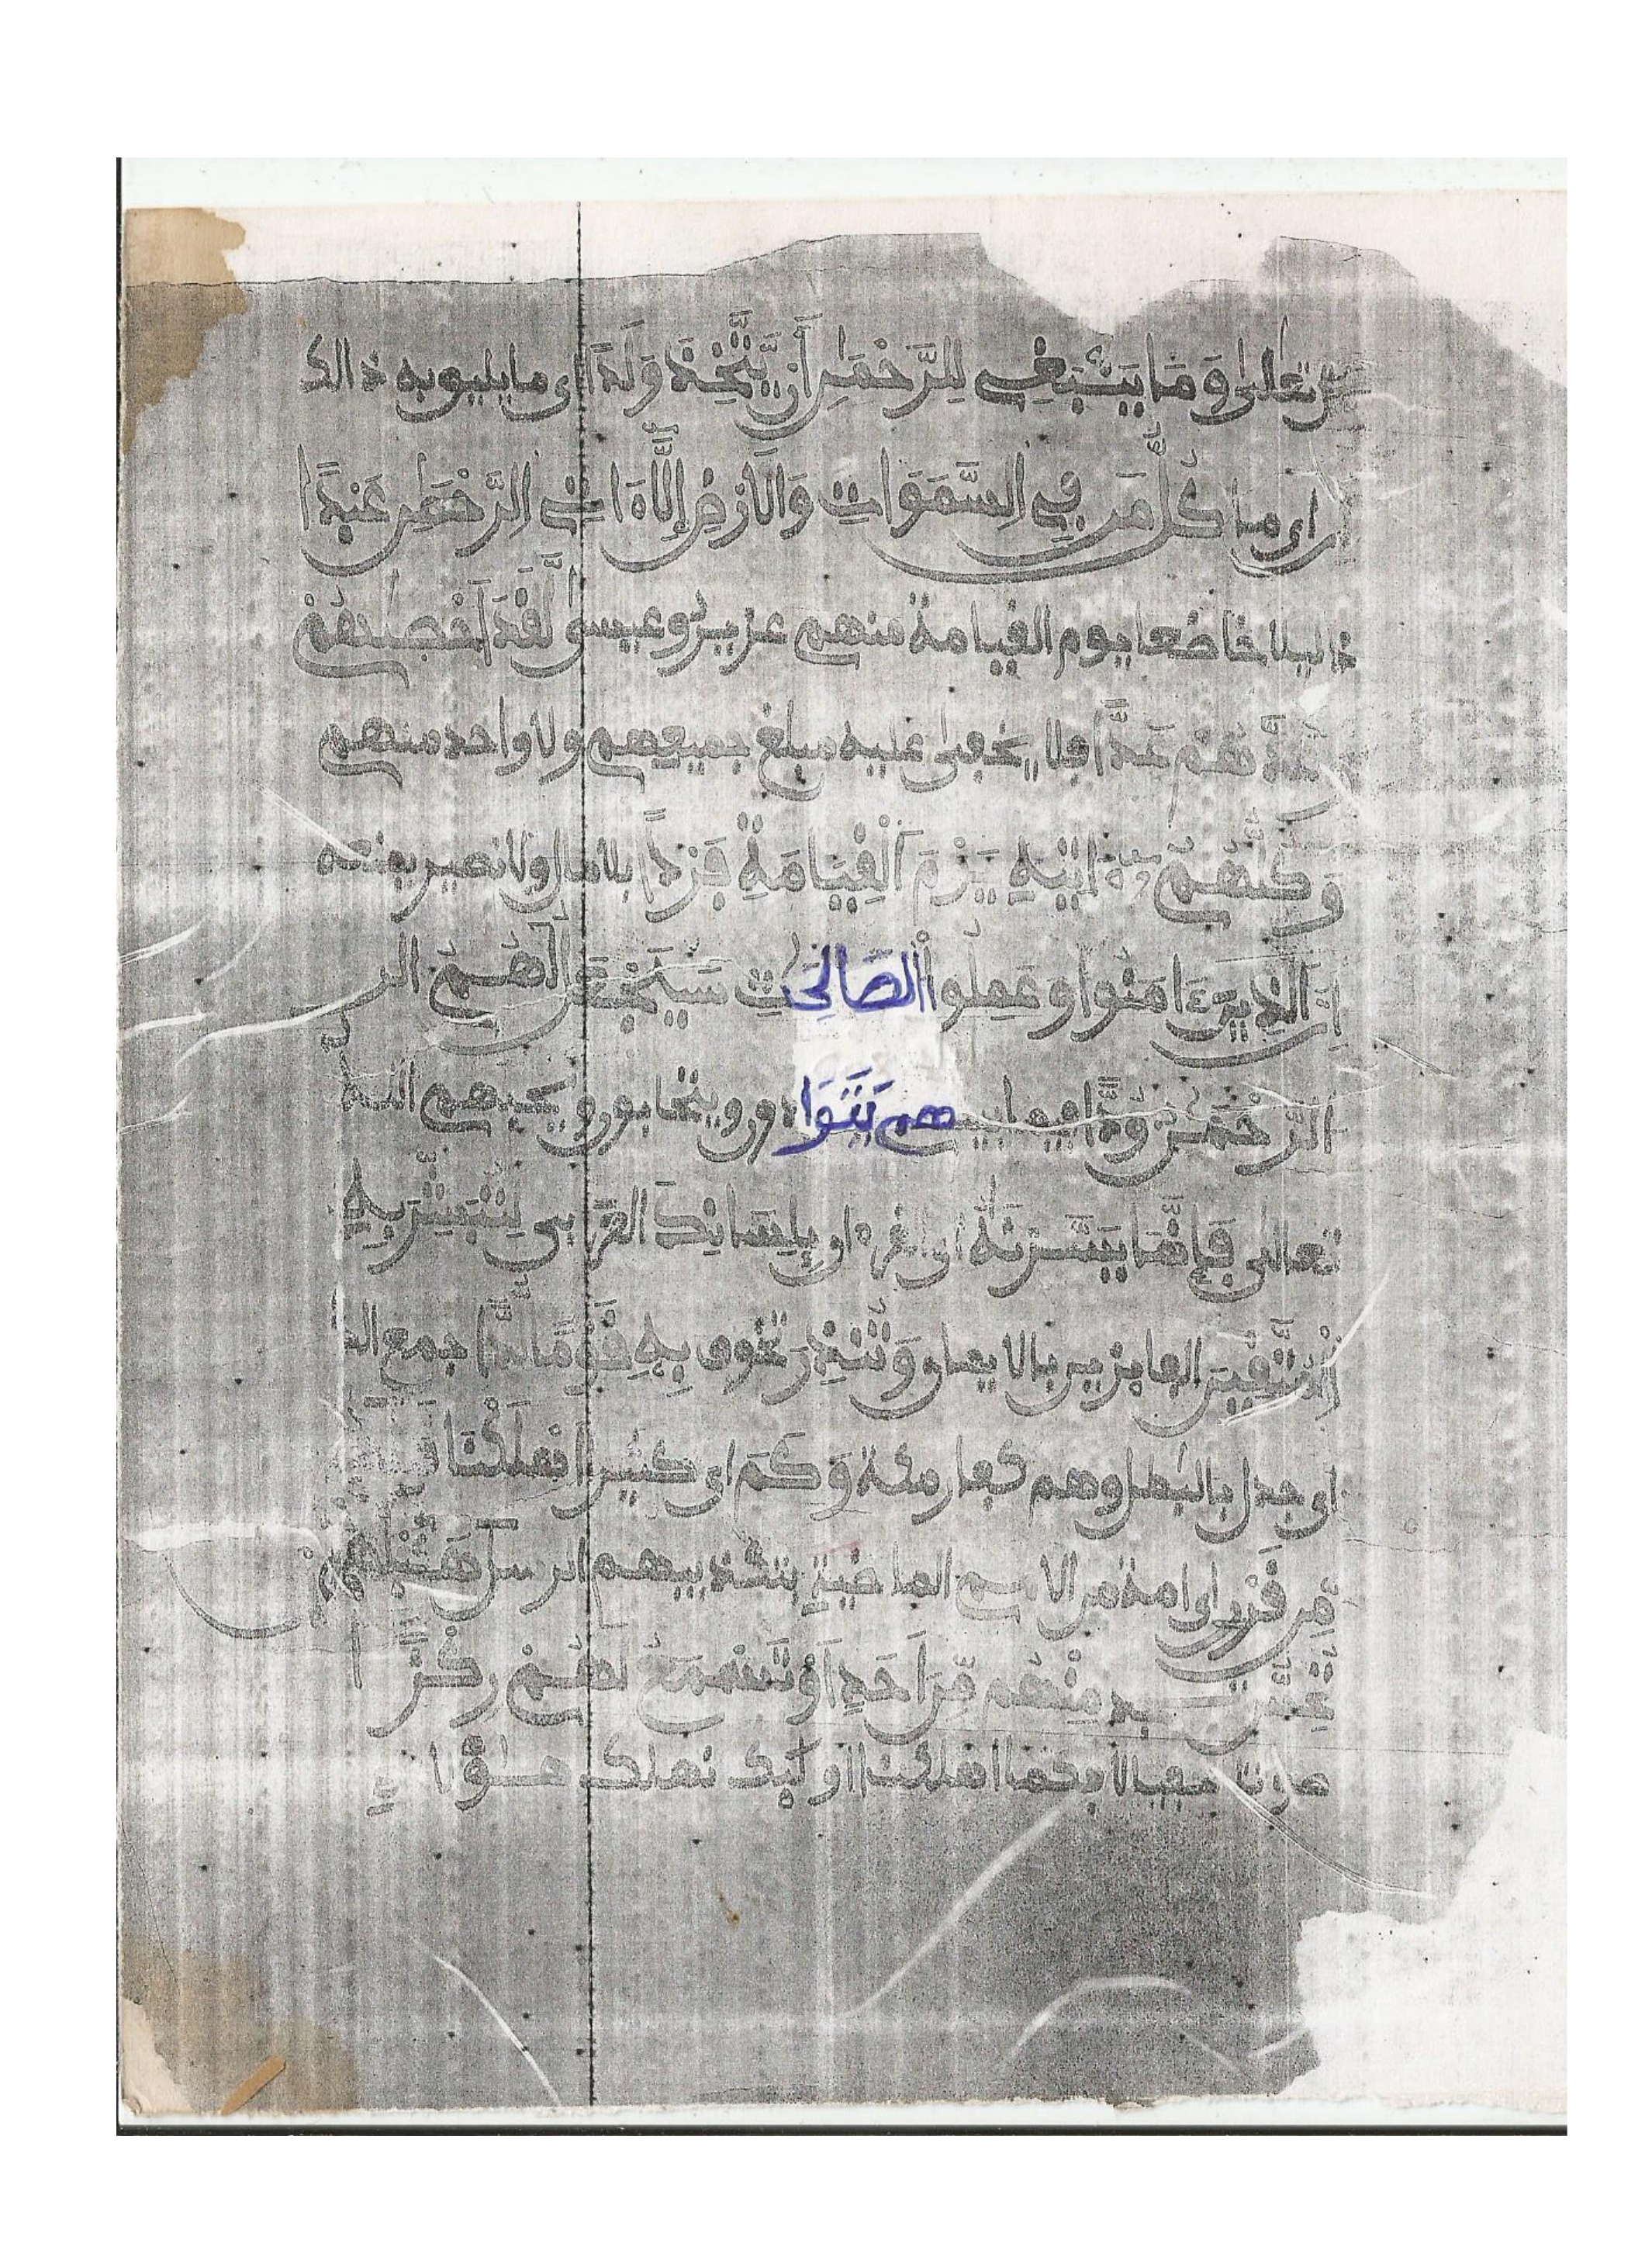 تعلى وَمَا يَنْبَغِى لِلرَّحْمَنِ أَنْ يَّتَّخِذَ وَلَداً اى ما يليق به ذالك
اى ما كُلُّ مَن فِى اِلسَّمَوَاتِ وَالَارْضِ إِلَّا ءَاتِى اِلرَّحْمَنِ عَبْداً
ذليلا خاضعا يوم القيامة منهم عزير وعيسى لَّقَدَ اَحْصَيهُمْ
وَعَدَّهُمْ عَدّاً فلا يخفى عليه مبلغ جميعهم ولا واحد منهم
وَكُلُّهُمُ ءَاتِيهِ يَوْمَ اَلْقِيَامَةِ فَرْداً بلا مال ولا نصير يمنعه
اِنَّ الذِينَ ءَامَنُوا وَعَمِلُوا الصَّالِحَاتِ سَيَجْعَلُ لَهُمُ الر
الرَّحْمَنُ وُدّاً فيما بينهم يَتَوَادون ويتحابون ويحبهم الله
تعالى فَإِنَّمَا يَسَّرْنَهُ اى القرءان بِلِسَانِكَ العربى لِتُبَشِّرَ بِهِ
اِلْمُتَّقِينَ الفايزين بالايمان وَتُنذِرَ تخوف بِهِ قَوْماً لُّدّاً جمع الد
اى جدل بالبطل وهم كفار مكة وَكَمَ اى كثيرا اَهْلَكْنَا قَبْلَهُم
مِّن قَرْنٍ اى امة من الامم الماضية بتكذيبهم الرسل هَلْ
تُحِسُّ تجد مِنْهُم مِّنَ اَحَدٍ اَوْ تَسْمَعُ لَهُمْ رِكْزاً
صوتا خفيا لا فكما اهلكنا اوليك نهلك هؤلاء